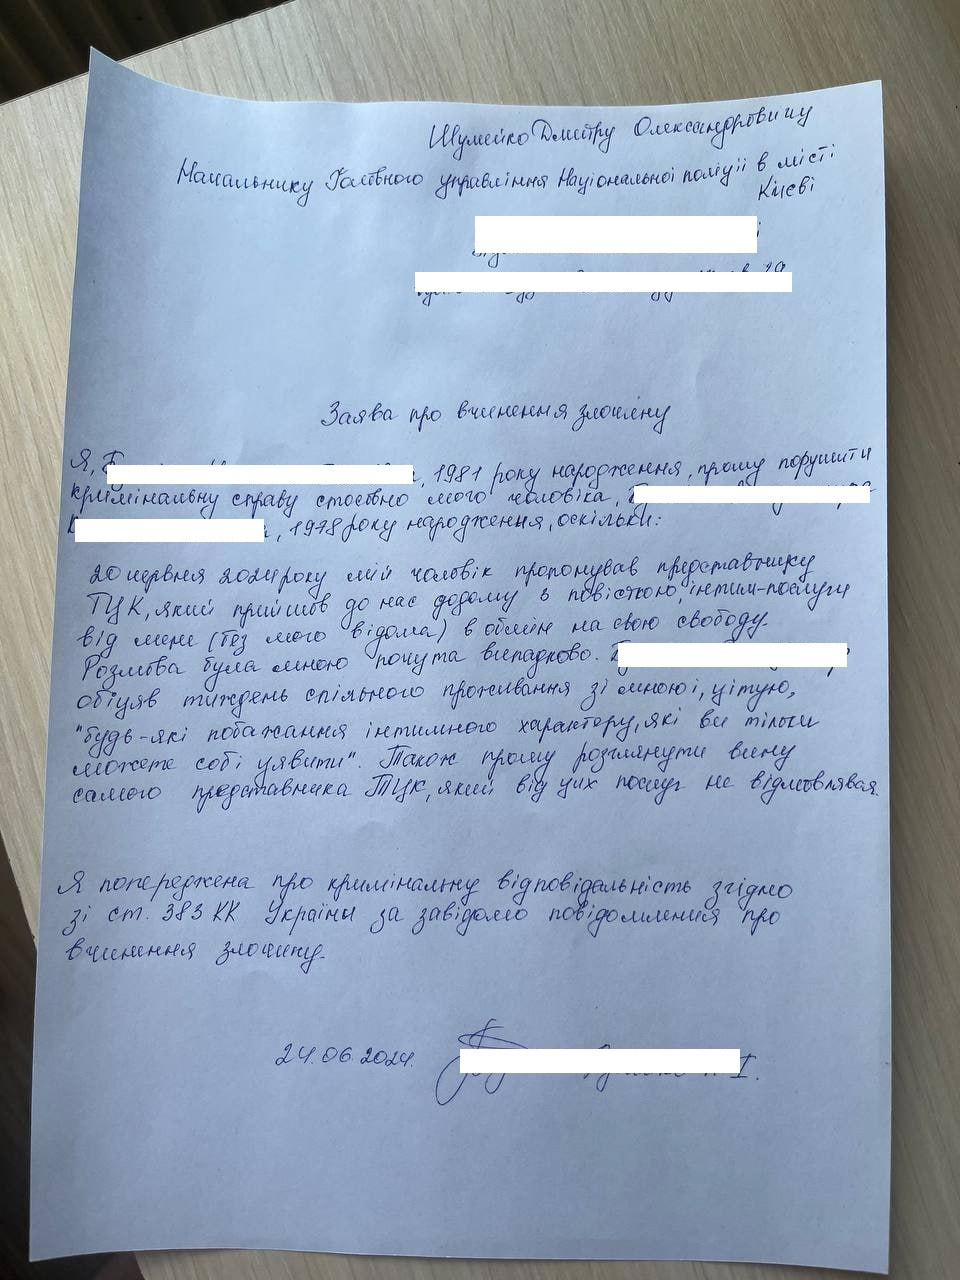 Шумейко Дмитру Олександровичу
Начальнику Головного управління Національної поліції в місті
Києві
Заява про вчинення злочину
Я, Б , 1981 року народження, прошу порушити
кримінальну справу стосовно мого чоловіка,
, 1978 року народження, оскільки:
20 червня 2024 року мій чоловік пропонував представнику
ТЦК, який прийшов до нас додому з повісткою, інтим-послуги
від мене (без мого відома) в обмін на свою свободу.
Розмова була мною почута випадково.
обіцяв тиждень спільного проживання зі мною і, цітую,
"будь-які побажання інтимного характеру, які ви тільки
можете собі уявити". Також прошу розглянути вину
самого представника ТЦК, який від цих послуг не відмовлявся.
Я попереджена про кримінальну відповідальність згідно
зі ст. 383 КК України за завідомо повідомлення про
вчинення злочину.
24.06.2024. І.